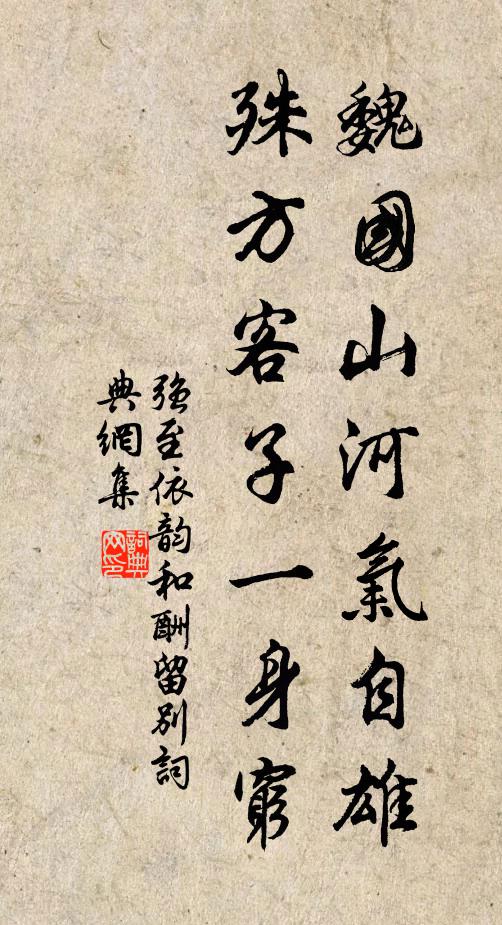 魏國山河氣自雄
殊方客子一身窮
強至依韵和酬留別詞
典網集
詞典
网印